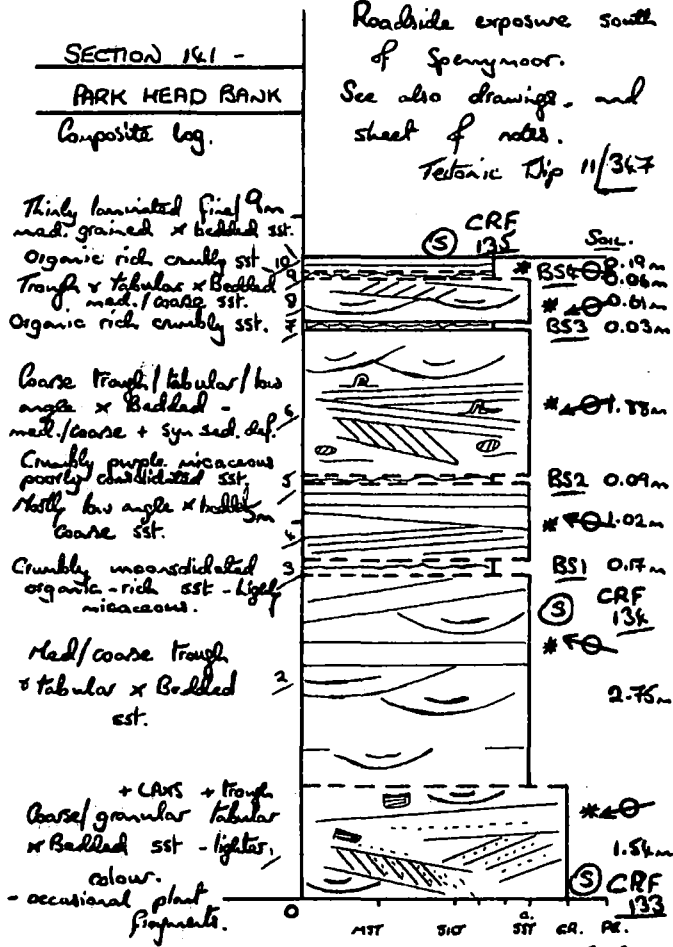 SECTION 141 -
PARK HEAD BANK
Composite log.
Roadside exposure south
of Spennymoor.
See also drawings, and
sheet of notes.
Tectonic Dip 11/347
9m
Thinly laminated fine/
med. grained x bedded sst.
Organic rich crumbly sst.
Trough & tabular x Bedded
med./coarse sst.
Organic rich crumbly sst.
Coarse trough/tabular/low
angle x Bedded -
med./coarse + syn sed. def.
Crumbly purple micaceous
poorly consolidated sst.
Mostly low angle x bedded
5m
coarse sst.
Crumbly unconsolidated
organic-rich sst - highly
micaceous.
Med/coarse trough
& tabular x Bedded
sst.
+ CAXS + trough
Coarse/granular tabular
x Bedded sst - lighter
colour.
- occasional plant
fragments.
10
9
8
7
6
5
4
3
2
1
0
S CRF
135
SOIL.
* BS4 0.19m
0.06m
* 0.61m
BS3 0.03m
* 1.88m
BS2 0.09m
* 1.02m
BS1 0.17m
S CRF
134
*
2.75m
*
1.54m
S CRF
133
MST SILT C. SST GR. PE.